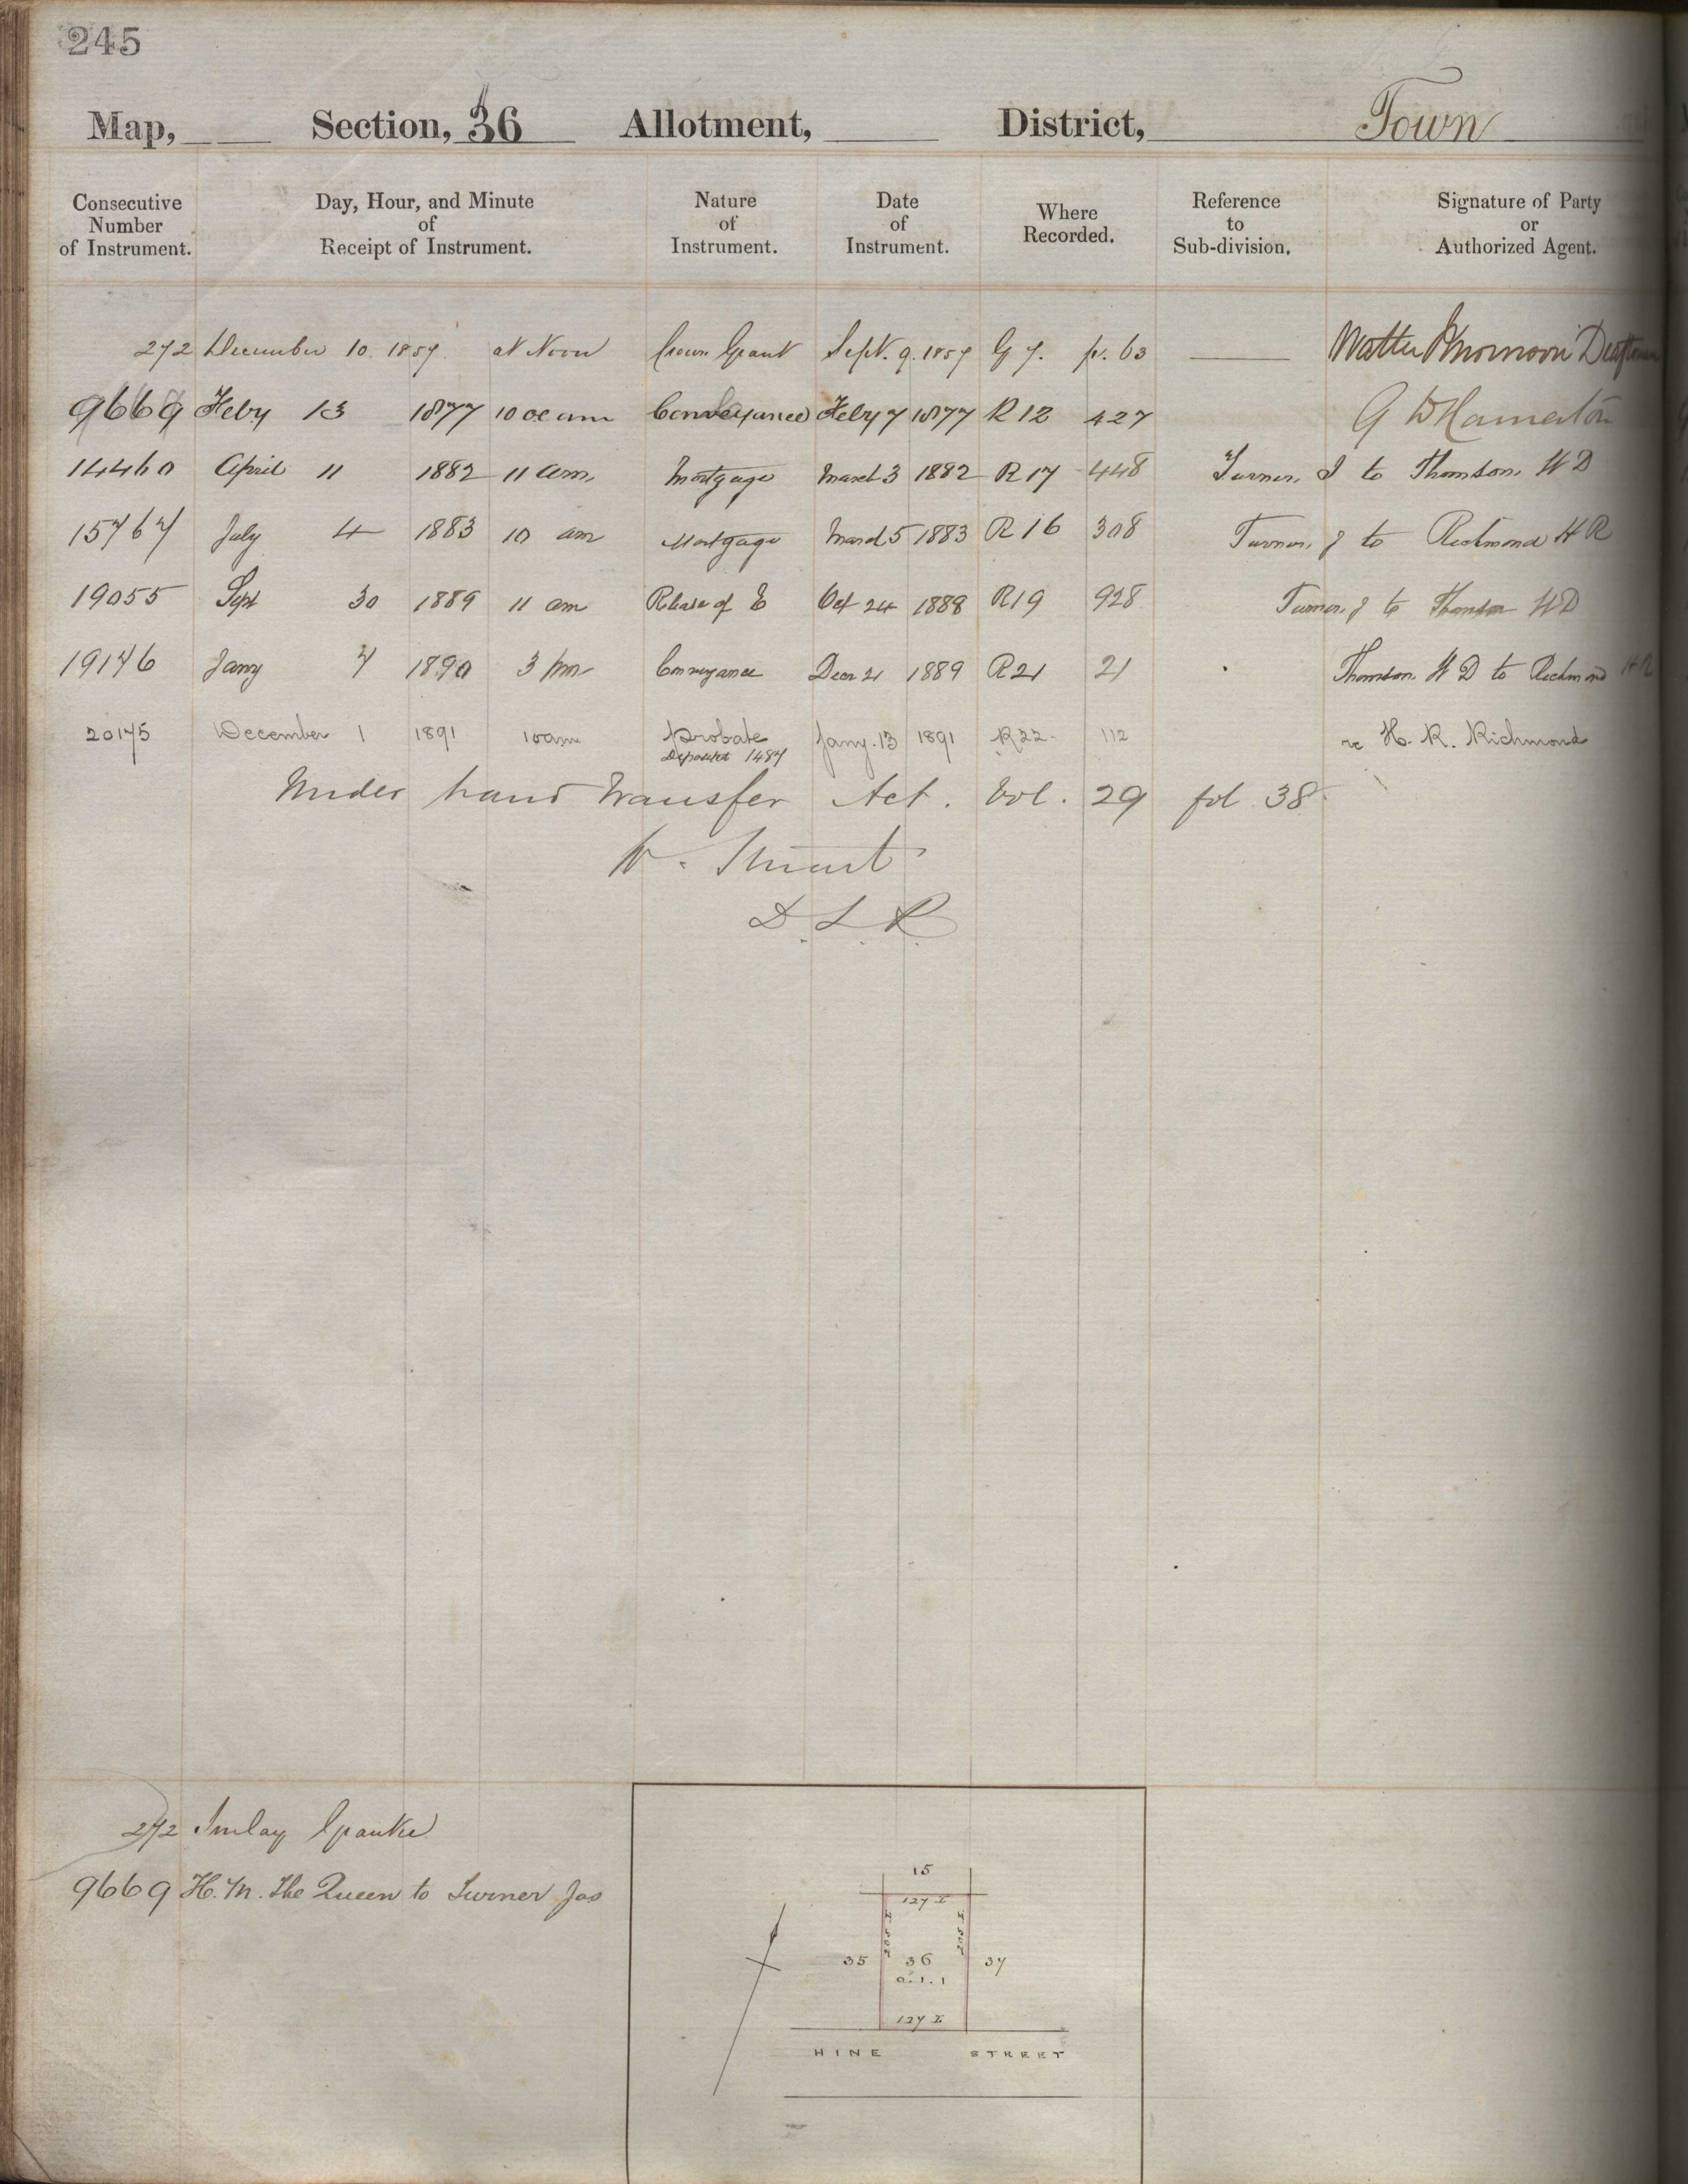 245
Map, Section, 36 Allotment, District, Town
Consecutive Number of Instrument. Day, Hour, and Minute of Receipt of Instrument. Nature of Instrument. Date of Instrument. Where Recorded. Reference to Sub-division. Signature of Party or Authorized Agent.
272 December 10. 1857. at Noon Crown Grant Sept. 9. 1857 G 7. p. 63 Walter Morrison
9669 Feby 13 1877 10 oc am Conveyance Feby 7 1877 R 12 427 G W Hamerton
14460 April 11 1882 11 am Mortgage March 3 1882 R 17 448 Turner, J to Thomson, W D
15767 July 4 1883 10 am Mortgage March 5 1883 R 16 308 Turner, J to Richmond H R
19055 Sept 30 1889 11 am Release of E Oct 24 1888 R19 928 Turner, J to Thomson W D
19176 Jany 7 1890 3 pm Conveyance Decr 21 1889 R21 21 Thomson, W D to Richmond H R
20175 December 1 1891 10 am Probate Jany. 13 1891 R22. 112 re H. R. Richmond
Deposited 1487
Under Land Transfer Act. Vol. 29 fol 38.
W. Stuart
D. L. R.
272 Imlay Grantee
9669 H. M. the Queen to Turner Jas
15
127 L
205 L 205 L
35 36 37
0. 1. 1
127 L
HINE STREET